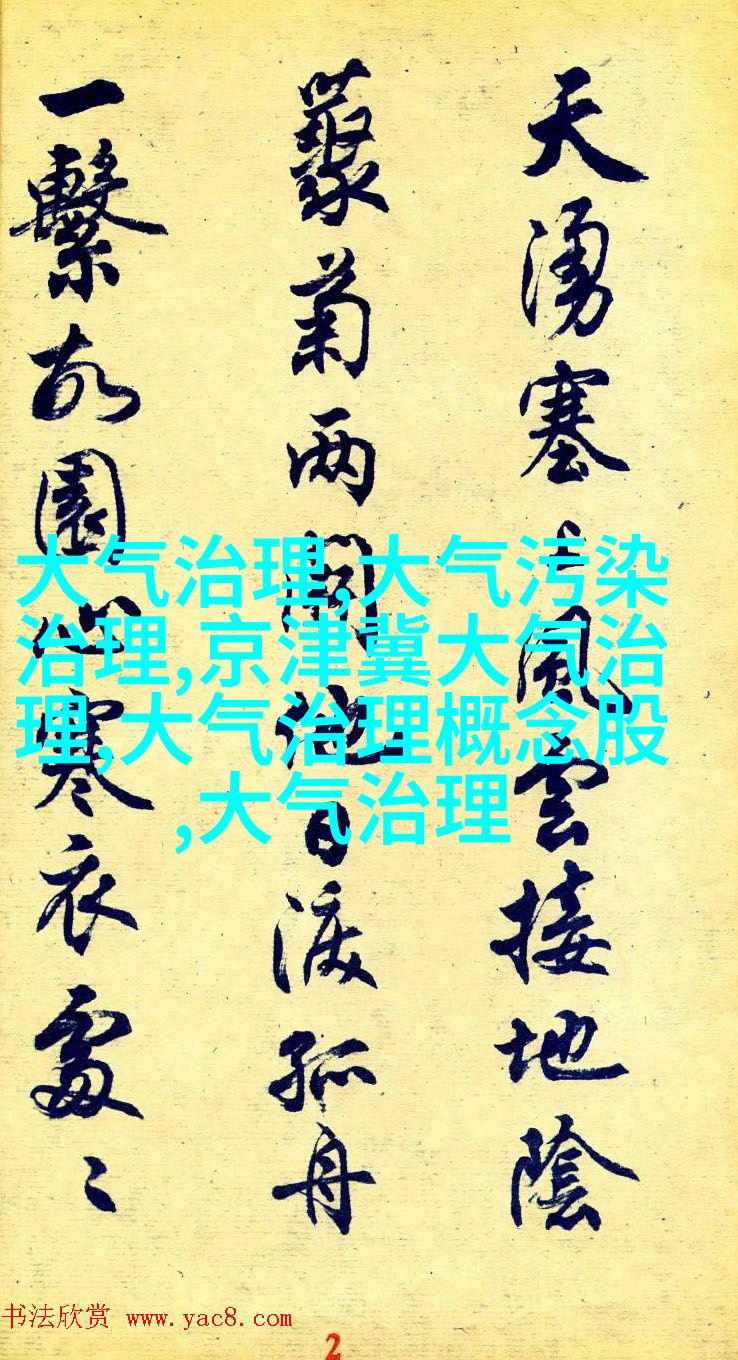 天湧塞上風雲接地陰
叢菊两開他日淚孤舟
一繫故園心寒衣處〻
大气治理,大气污染
治理,京津冀大气治
理,大气治理概念股
,大气治理
书法欣赏 www.yac8.com
2